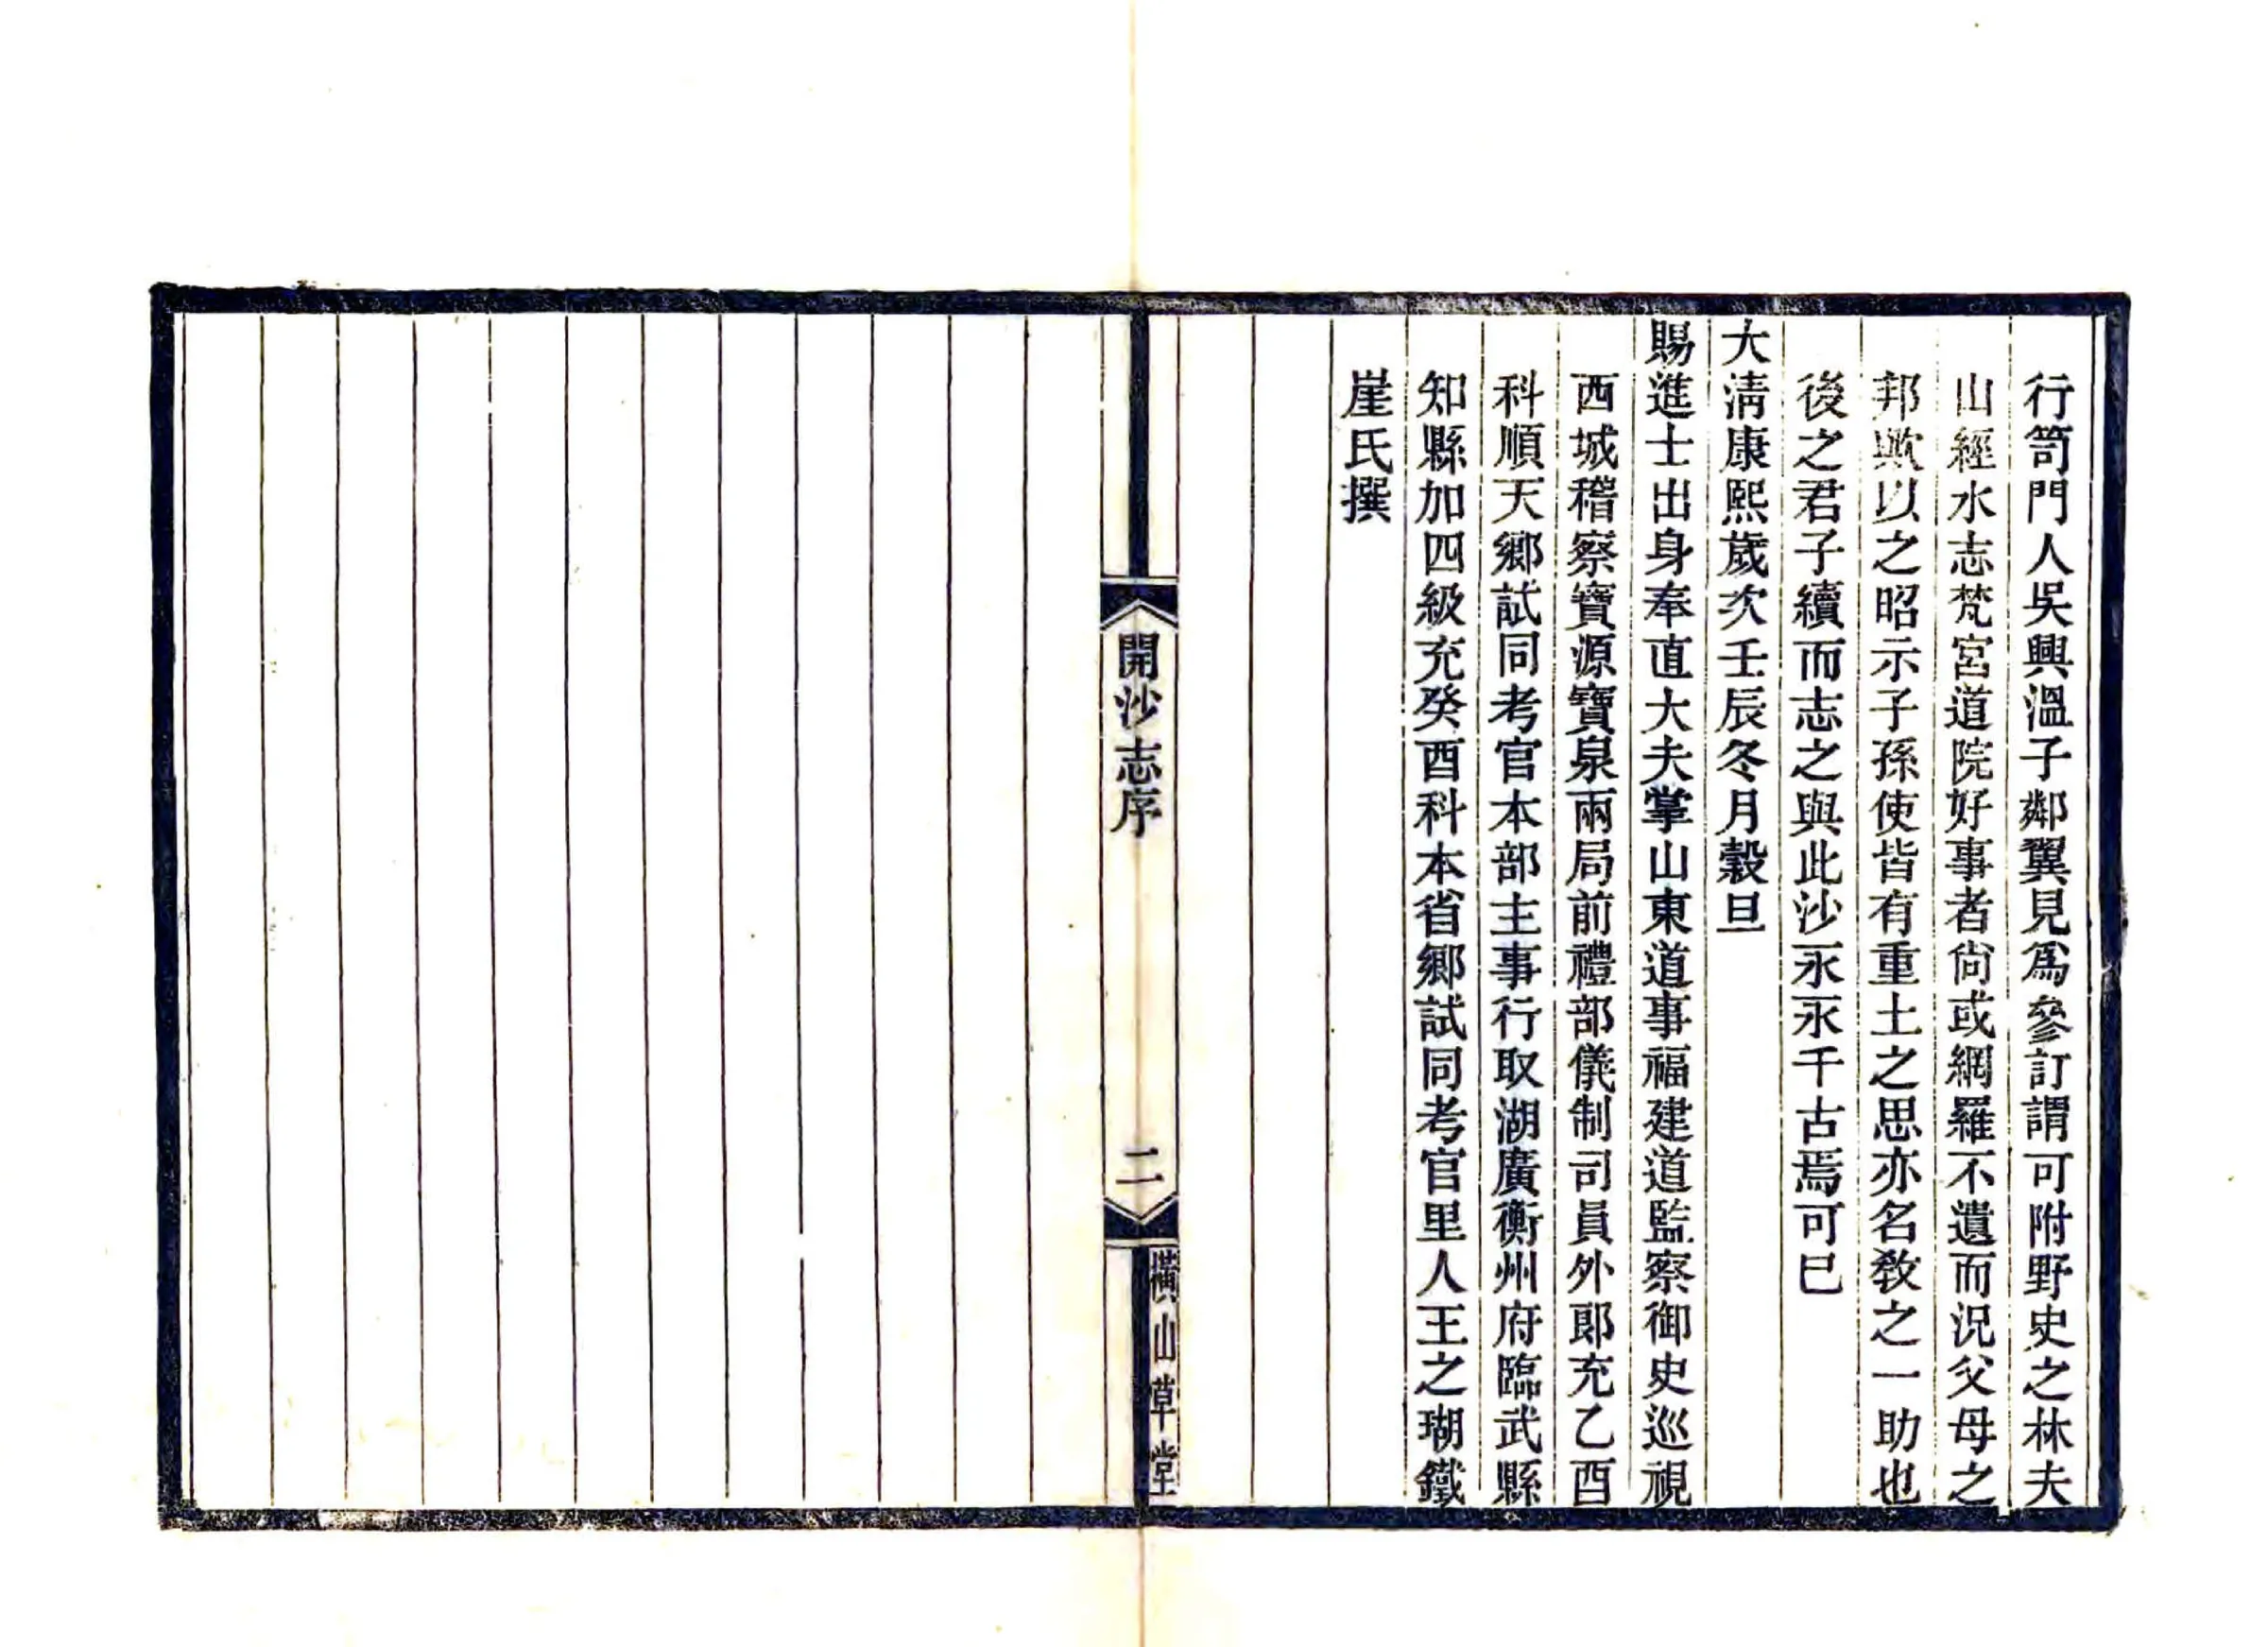 行笥門人吳興溫子鄰翼見爲參訂謂可附野史之林夫
山經水志梵宮道院好事者尙或網羅不遺而況父母之
邦歟以之昭示子孫使皆有重土之思亦名敎之一助也
後之君子續而志之與此沙永永千古焉可已
大淸康熙歲次壬辰冬月穀旦
賜進士出身奉直大夫掌山東道事福建道監察御史巡視
西城稽察寶源寶泉兩局前禮部儀制司員外郞充乙酉
科順天鄉試同考官本部主事行取湖廣衡州府臨武縣
知縣加四級充癸酉科本省鄉試同考官里人王之瑚鐵
崖氏撰
開沙志序
二
橫山草堂